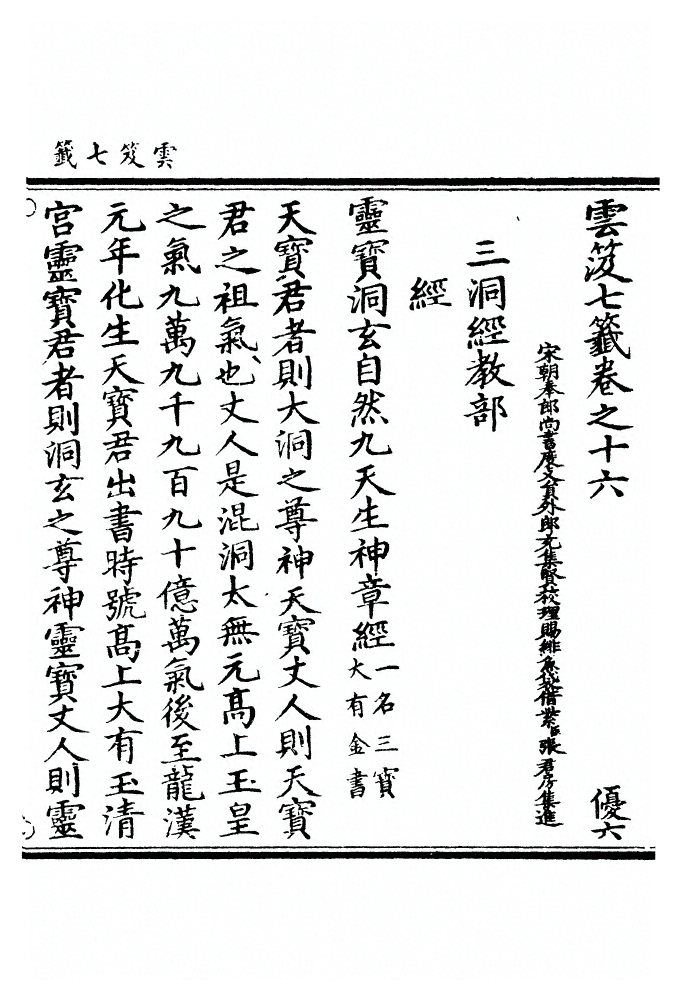 雲笈七籤
雲笈七籤卷之十六 優六
宋朝奉郎尚書度支員外郎充集賢校理賜緋魚袋借紫臣張君房集進
三洞經教部
經
靈寶洞玄自然九天生神章經一名三寶大有金書
天寶君者則大洞之尊神天寶丈人則天寶
君之祖氣也丈人是混洞太無元髙上玉皇
之氣九萬九千九百九十億萬氣後至龍漢
元年化生天寶君出書時號髙上大有玉清
宮靈寶君者則洞玄之尊神靈寶丈人則靈